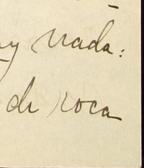 y nada:
de roca